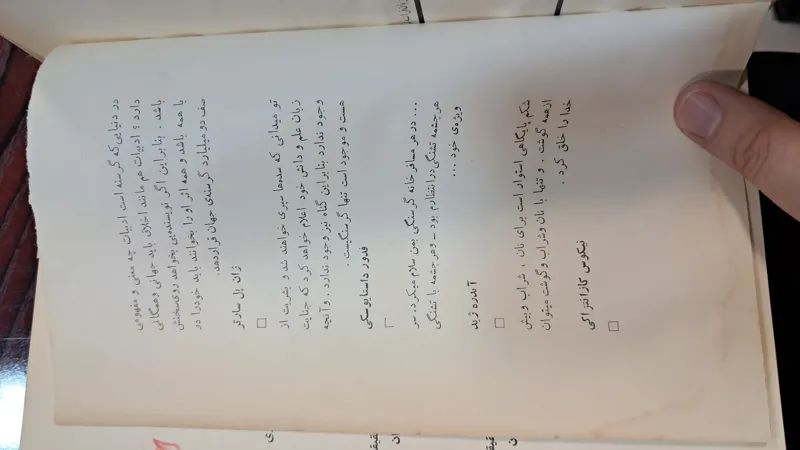 در دنیایی که گرسنه است ادبیات چه معنی و مفهومی
دارد ؟ ادبیات هم مانند اخلاق باید جهانی وهمگانی
باشد . بنا بر این اگر نویسنده‌یی بخواهد روی‌سخنش
با همه باشد و همه اثر او را بخوانند باید خودرا در
صف دو میلیارد گرسنه‌ی جهان قراردهد.
ژان پل سارتر
تو میدانی که سده‌ها سپری خواهند شد و بشریت از
زبان علم و دانش خود اعلام خواهد کرد که جنایت
وجود ندارد بنا بر این گناه نیز وجود ندارد . و آنچه
هست و موجود است تنها گرسنگیست .
فدور داستایوسکی
... در هر مسافرخانه گرسنگی بمن سلام میکرد. سر
هرچشمه تشنگی در انتظارم بود – وهرچشمه با تشنگی
ویژه‌ی خود ...
آندره ژید
شکم پایگاهی استوار است برای نان ، شراب وبیش
ازهمه گوشت . و تنها با نان وشراب وگوشت میتوان
خدا را خلق کرد .
نیکوس کازانتزاکی